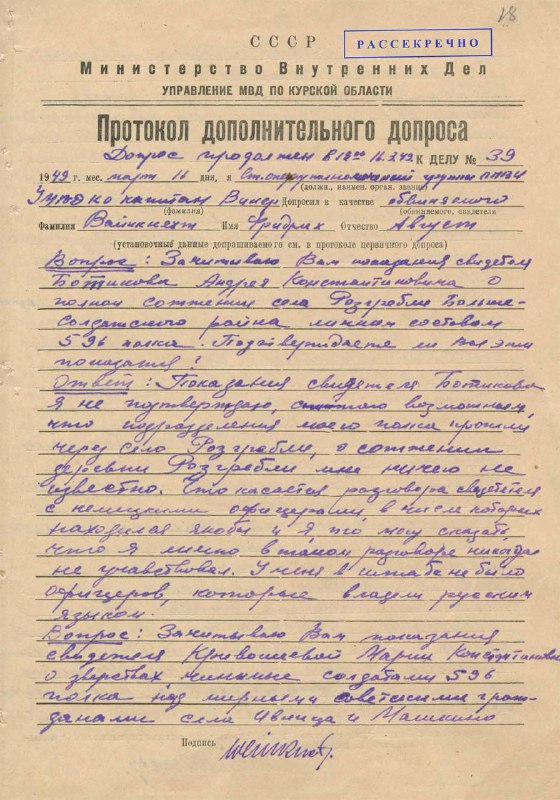 18
СССР
РАССЕКРЕЧНО
Министерство Внутренних Дел
УПРАВЛЕНИЕ МВД ПО КУРСКОЙ ОБЛАСТИ
Протокол дополнительного допроса
Допрос продолжен в 12 00 16.3.49 К ДЕЛУ № 39
1949 г. мес. март 16 дня, я Ст. оперуполномоченный группы
(должн., наимен. орган. звание)
капитан Винер Допросил в качестве обвиняемого
(фамилия) (обвиняемого, свидетеля
Фамилия Вайнкнехт Имя Фридрих Отчество Август
(установочные данные допрашиваемого см. в протоколе первичного допроса)
Вопрос: Зачитываю Вам показания свидетеля
Ботикова Андрея Константиновича о
полном сожжении села Розгребли Больше-
солдатского района личным составом
596 полка. Подтверждаете ли Вы эти
показания?
Ответ: Показания свидетеля Ботикова
я не подтверждаю, возможным,
что подразделения моего полка прошли
через село Розгребли, о сожжении
деревни Розгребли мне ничего не
известно. Что касается разговора свидетеля
с немецкими офицерами, в числе которых
находился якобы и я, то могу сказать
что я лично в таком разговоре никогда
не учавствовал. У меня в штабе не было
офицеров, которые владели русским
языком.
Вопрос: Зачитываю Вам показания
свидетеля Кривошеевой Марии Константиновны
о зверствах, чинимые солдатами 596
полка над мирными советскими граж-
данами села Ивница и Машкино
Подпись